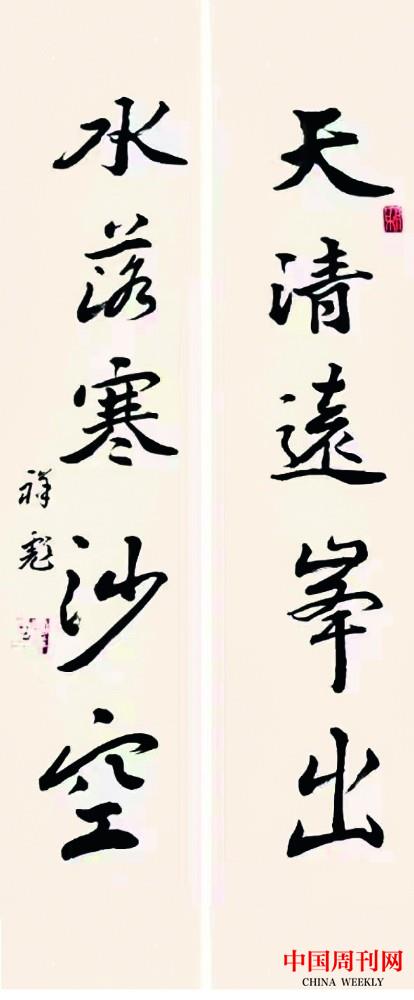 天清遠峯出
水落寒沙空
祥彪
中国周刊网
CHINA WEEKLY